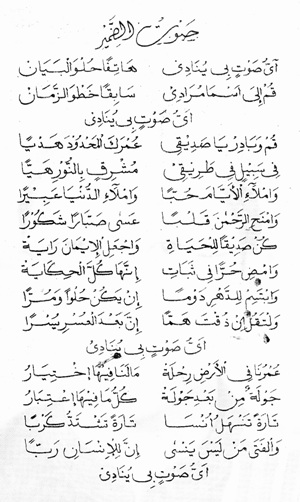 صَوْتُ الضَّمِيرِ
أَيُّ صَوْتٍ بِي يُنَادِي هَاتِفًا حُلْوَ الْبَيَانِ
قُمْ إِلَى أَسْمَا مُرَادِي سَابِقًا خَطْوَ الزَّمَانِ
أَيُّ صَوْتٍ بِي يُنَادِي
قُمْ وَبَادِرْ يَا صَدِيقِي عُمْرُكَ الْمَحْدُودُ هَدْيًا
فِي سَبِيلٍ فِي طَرِيقٍ مُشْرِقٍ بِالنُّورِ هَيَّا
وَامْلَاءِ الْأَيَّامَ حُبًّا وَامْلَاءِ الدُّنْيَا عَبِيرًا
وَامْنَحِ الرَّحْمٰنَ قَلْبًا عَسَى صَبَّارًا شَكُورًا
كُنْ صَدِيقًا لِلْحَيَاةِ وَاجْعَلِ الْإِيمَانَ رَايَةً
وَامْضِ حُرًّا فِي ثَبَاتٍ إِنَّهَا كُلُّ الْحِكَايَةِ
وَابْتَسِمْ لِلدَّهْرِ دَوْمًا إِنْ يَكُنْ حُلْوًا وَمُرًّا
وَلْتَقُلْ إِنْ ذُقْتَ هَمًّا إِنَّ بَعْدَ الْعُسْرِ يُسْرًا
أَيُّ صَوْتٍ بِي يُنَادِي
عُمْرُنَا فِي الْأَرْضِ رِحْلَة مَا لَنَا فِيهَا اخْتِيَارُ
جَوْلَةٌ مِنْ بَعْدِ جَوْلَة كُلُّ مَا فِيهَا اعْتِبَارُ
تَارَةً تَنْهَلُ أُنْسًا تَارَةً تَقْتَدُّ كَرْبًا
وَالْفَتَى مَنْ لَيْسَ يَنْسَى إِنَّ لِلْإِنْسَانِ رَبًّا
أَيُّ صَوْتٍ بِي يُنَادِي